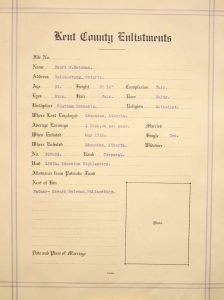 Kent County Enlistments
File No.
Name. Henri F. Bateman.
Address Wallaceburg, Ontario.
Age 21. Height 5' 10" Complexion Fair.
Eyes Blue. Hair Fair. Race
Birthplace Chatham Township. Religion Methodist.
Where Last Employed Edmonton, Alberta.
Average Earnings per year. Married
When Enlisted May 15th. Single Yes.
Where Enlisted Edmonton, Alberta. Widower
No. Rank Corporal.
Unit Edmonton Highlanders.
Allowance from Patriotic Fund
Next of Kin
Father- Edward Bateman, Wallaceburg.
Date and Place of Marriage